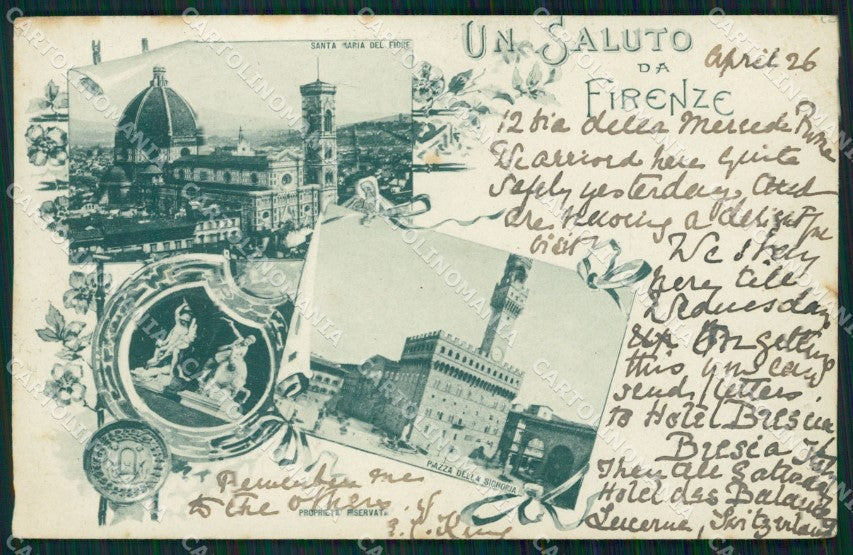 SANTA MARIA DEL FIORE
UN SALUTO
DA
FIRENZE
April 26
12 Via della Mercede Rome
We arrived here quite
safely yesterday, and
are having a delightful
visit
We stay
here till
Wednesday
On getting
this you can
send letters
to Hotel Brescia
Brescia
Then till Saturday
Hotel des Balances
Lucerne, Switzerland
PIAZZA DELLA SIGNORIA
Remember me
to the others.
PROPRIETÀ RISERVATA
E. C. King
CARTOLINOMANIA